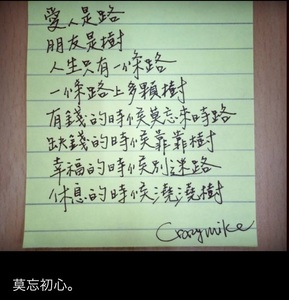 愛人是路
朋友是樹
人生只有一條路
一條路上多顆樹
有錢的時候莫忘來時路
缺錢的時候靠靠樹
幸福的時候別迷路
休息的時候澆澆樹
Crazymike
莫忘初心。